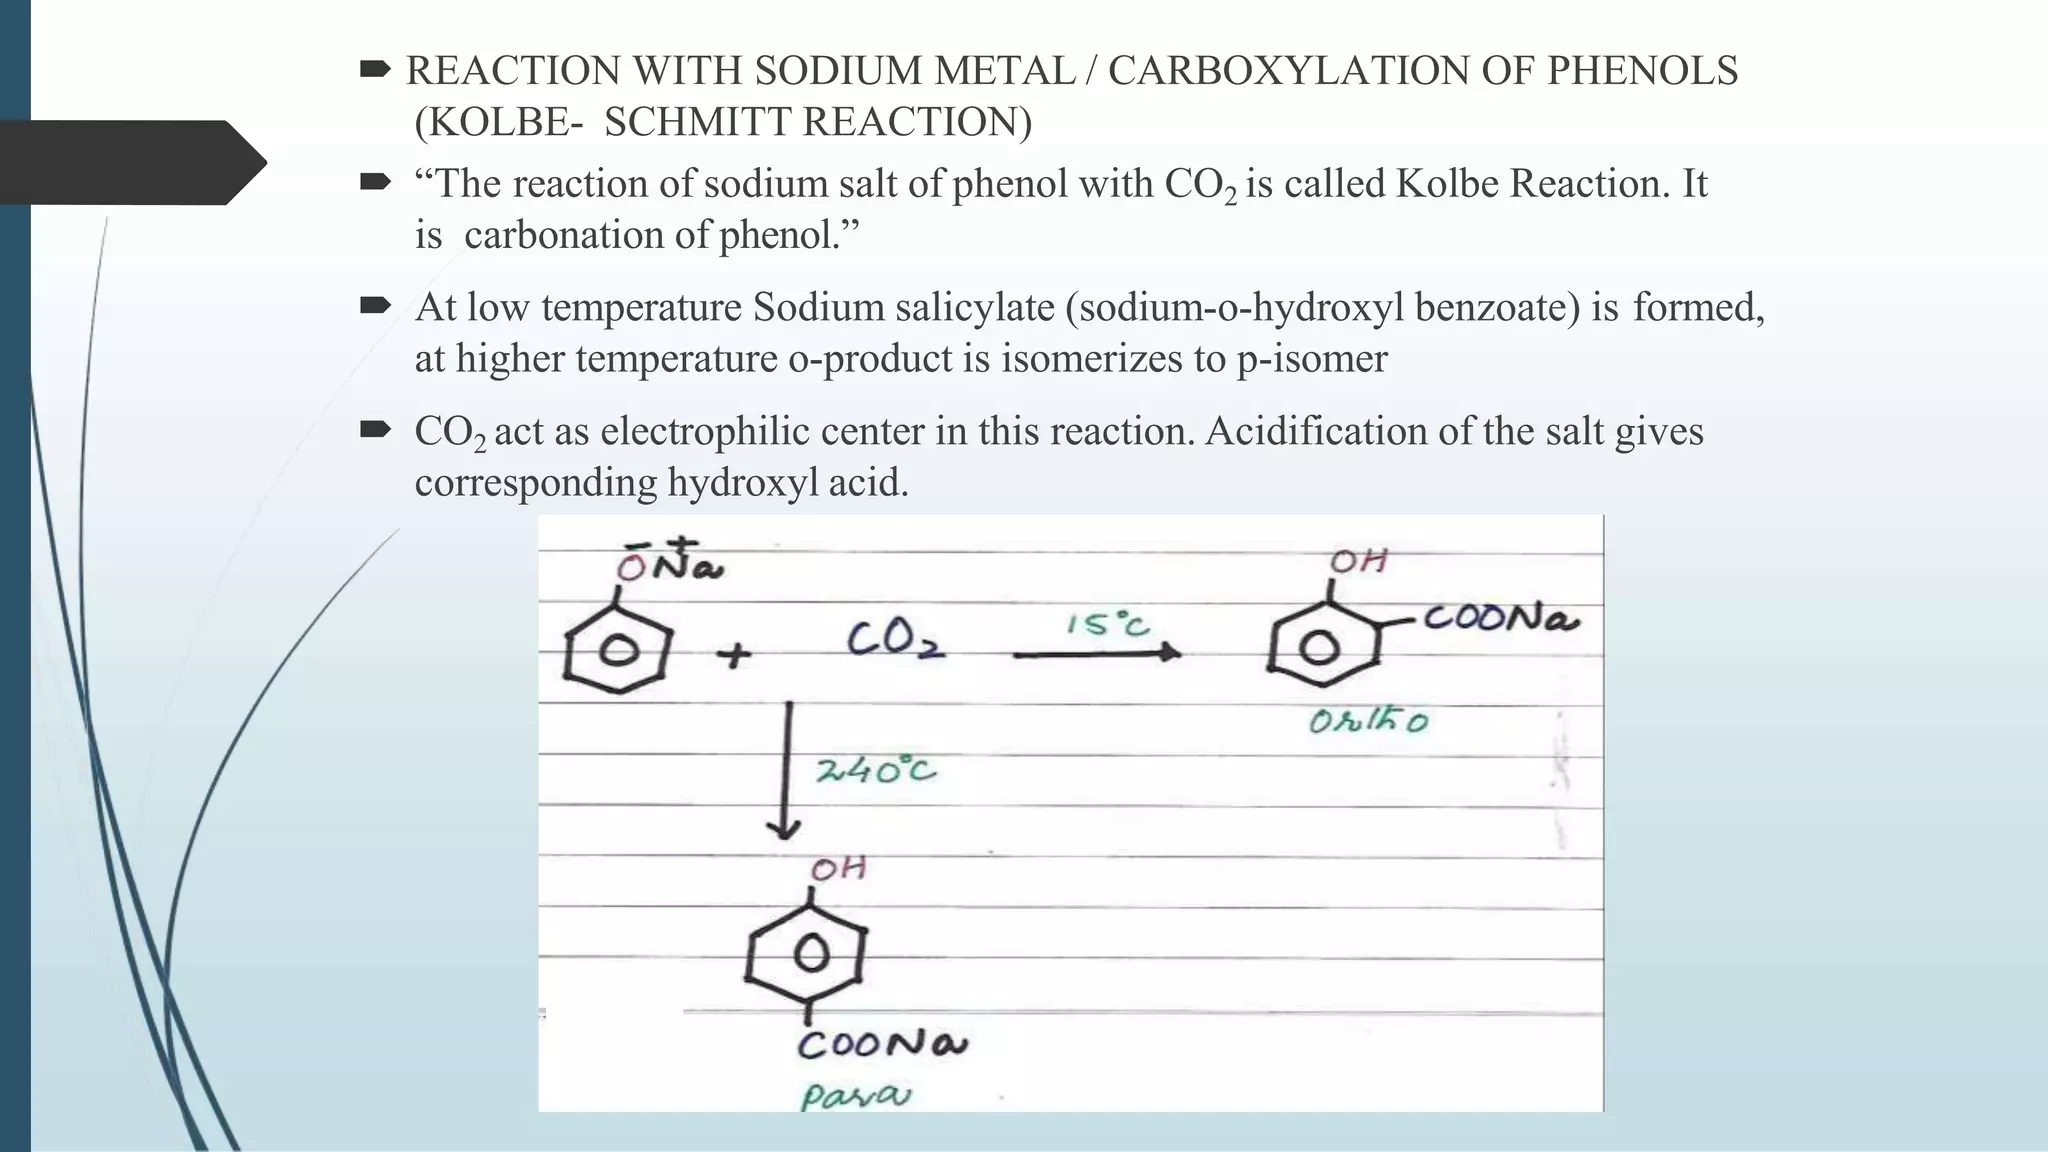 REACTION WITH SODIUM METAL / CARBOXYLATION OF PHENOLS
(KOLBE- SCHMITT REACTION)
“The reaction of sodium salt of phenol with CO₂ is called Kolbe Reaction. It
is carbonation of phenol.”
At low temperature Sodium salicylate (sodium-o-hydroxyl benzoate) is formed,
at higher temperature o-product is isomerizes to p-isomer
CO₂ act as electrophilic center in this reaction. Acidification of the salt gives
corresponding hydroxyl acid.
- +
ONa
OH
COONa
+ CO₂ 15°C
ortho
240°C
OH
COONa
para